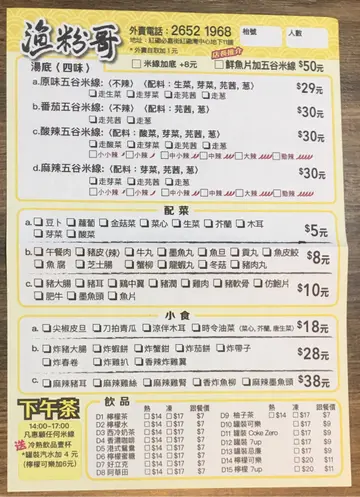 漁粉哥
外賣電話：2652 1968
枱號
人數
* 外賣自取加1元
店長推介
湯底（四味）
□ 米線加底 +8元
□ 鮮魚片加五谷米線 $50元
a.原味五谷米線:（不辣）（配料：生菜, 芽菜, 芫茜, 蔥） $29元
□走生菜 □走芽菜 □走芫茜 □走蔥
b.番茄五谷米線:（不辣）（配料：芫茜, 蔥） $30元
□走芫茜 □走蔥
c.酸辣五谷米線:（配料：酸菜, 芽菜, 芫茜, 蔥） $30元
□走酸菜 □走芽菜 □走芫茜 □走蔥
□小小辣 □小辣 □中小辣 □中辣 □大辣 □勁辣
d.麻辣五谷米線:（配料：芽菜, 芫茜, 蔥） $30元
□走芽菜 □走芫茜 □走蔥
□小小辣 □小辣 □中小辣 □中辣 □大辣 □勁辣
配菜
a. □豆卜 □蘿蔔 □金菇菜 □菜心 □生菜 □芥蘭 □木耳 $5元
□芽菜 □酸菜
b. □午餐肉 □豬皮(辣) □牛丸 □墨魚丸 □魚旦 □貢丸 □魚皮餃 $8元
□魚腐 □芝士腸 □蟹柳 □龍蝦丸 □冬菇 □豬肉丸
c. □豬大腸 □豬耳 □鷄中翼 □豬潤 □雞肉 □豬軟骨 □仿鮑片 $10元
□肥牛 □墨魚頭 □魚片
小食
a. □尖椒皮旦 □刀拍青瓜 □涼伴木耳 □時令油菜 (菜心, 芥蘭, 唐生菜) $18元
b. □炸豬大腸 □炸蝦餅 □炸蟹鉗 □炸茄餅 □炸帶子 $28元
□炸春卷 □炸雞扒 □香辣炸雞翼
c. □麻辣豬耳 □麻辣雞絲 □麻辣雞腎 □香炸魚柳 □麻辣墨魚頭 $38元
下午茶
14:00-17:00
凡惠顧任何米線
送 冷熱飲品壹杯
*罐裝汽水加 4 元
(檸檬可樂加6元)
飲品
熱 凍 跟餐價
D1 檸檬茶 □$14 □$17 $7
D2 檸檬水 □$14 □$17 $7
D3 西冷奶茶 □$14 □$17 $7
D4 香濃咖啡 □$14 □$17 $7
D5 港式鴛鴦 □$14 □$17 $7
D6 檸檬蜜糖 □$14 □$17 $7
D7 好立克 □$14 □$17 $7
D8 阿華田 □$14 □$17 $7
熱 凍 跟餐價
D9 柚子茶 □$14 □$17 $7
D10 罐裝可樂 □$17 $9
D11 罐裝 Coke Zero □$17 $9
D12 罐裝 7up □$17 $9
D13 罐裝忌廉 □$17 $9
D14 檸檬可樂 □$20 $11
D15 檸檬 7up □$20 $11